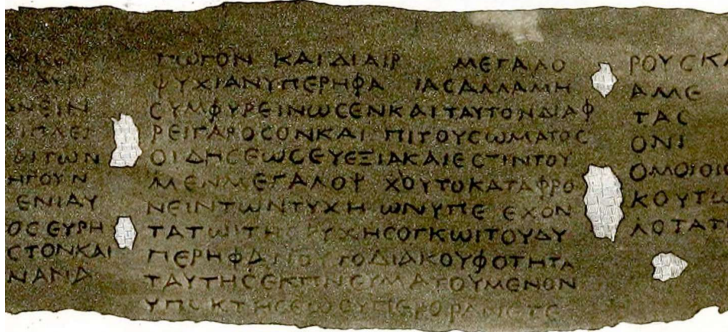 ΝΕΙΝ
ΠΛΕΣ
ΩΙΤΩΝ
ΗΓΟΥΝ
ΕΝΙΑΥ
ΟϹΕΥΡΗ
ϹΤΟΝΚΑΙ
ΝΑΝΔ
ΠΟΝ ΚΑΙΔΙΑΙΡ ΜΕΓΑΛΟ
ΨΥΧΙΑΝΥΠΕΡΗΦΑ ΙΑϹΑΛΛΑΜΗ
ϹΥΜΦΥΡΕΙΝΩϹΕΝΚΑΙΤΑΥΤΟΝΔΙΑΦ
ΡΕΙΓΑΡΟϹΟΝΚΑΙ ΠΙΤΟΥϹΩΜΑΤΟϹ
ΟΙΔΗϹΕΩϹΕΥΕΞΙΑΚΑΙΕϹΤΙΝΤΟΥ
ΜΕΝΜΕΓΑΛΟΨ ΧΟΥΤΟΚΑΤΑΦΡΟ
ΝΕΙΝΤΩΝΤΥΧΗ ΩΝΥΠΕ ΕΧΟΝ
ΤΑΤΩΙΤΗϹ ΥΧΗϹΟΓΚΩΙΤΟΥΔΥ
ΠΕΡΗΦΑ ΟΥΤΟΔΙΑΚΟΥΦΟΤΗΤΑ
ΤΑΥΤΗϹΕΚΠΝΕΥΜΑΤΟΥΜΕΝΟΝ
ΥΠΟΚΤΗϹΕΩϹΥΠΕΡΟΡΑΝΕΤΕ
ΡΟΥϹΚΑ
ΑΜΕ
ΤΑϹ
ΟΝΙ
ΟΜΟΙΟΙ
ΚΟΥΤΩ
ΛΟΤΑΤ